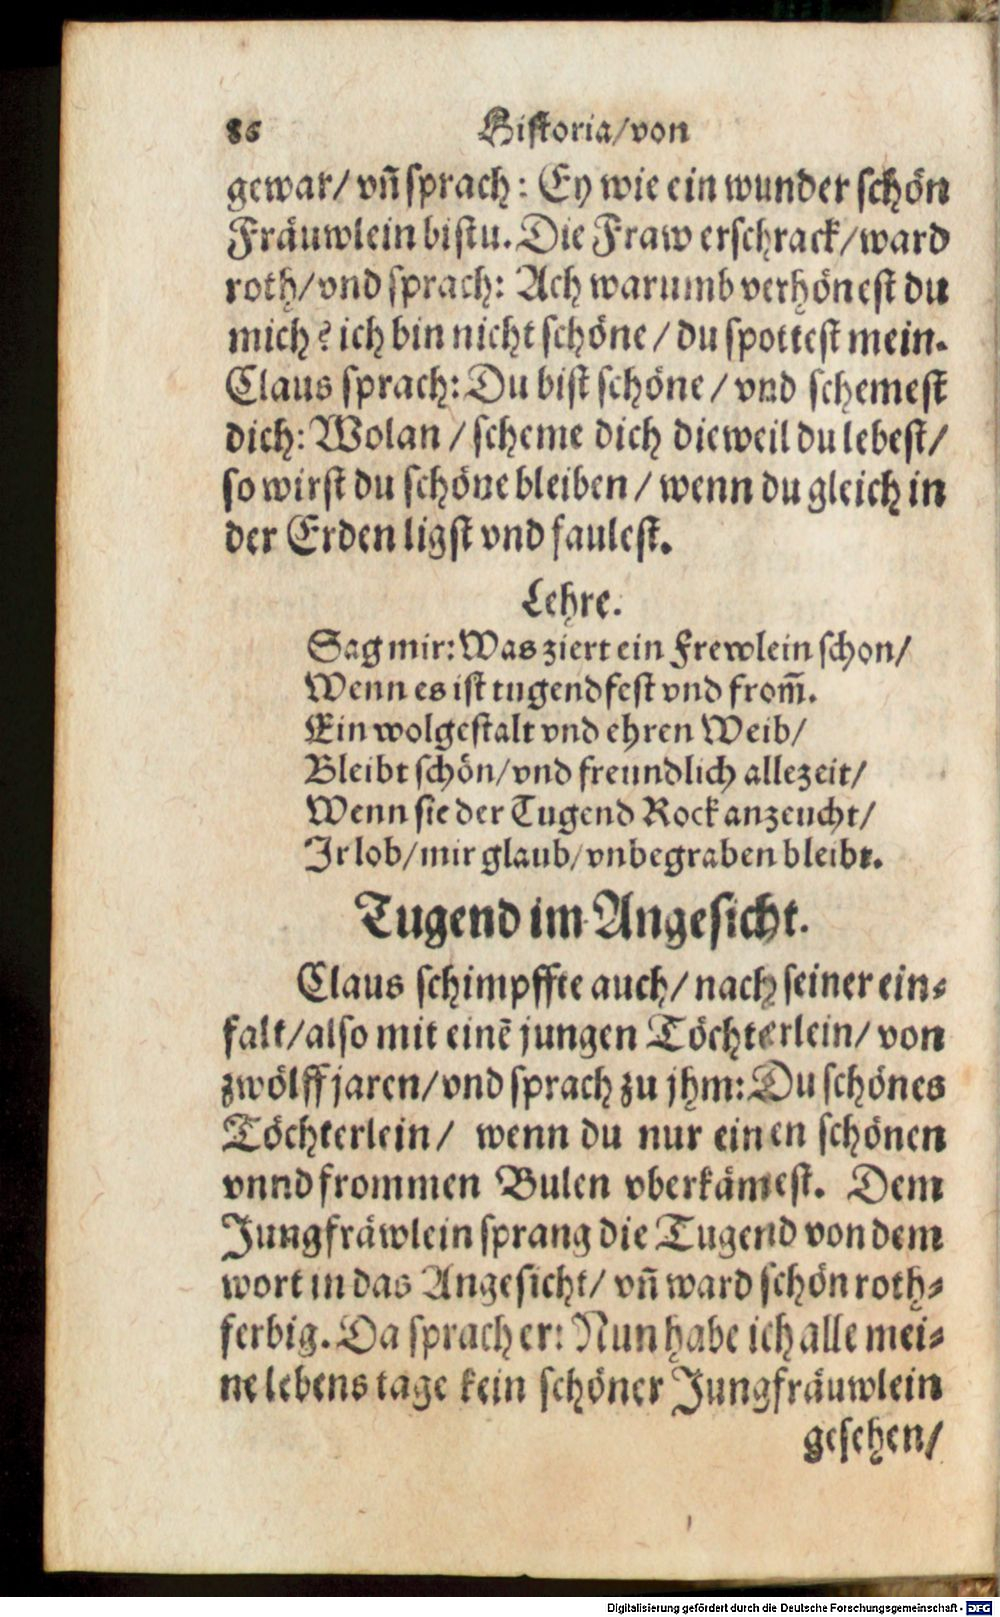 86 Historia/von
gewar/ vn̄ sprach: Ey wie ein wunder schön
Fräuwlein bistu. Die Fraw erschrack/ward
roth/vnd sprach: Ach warumb verhönest du
mich? ich bin nicht schöne / du spottest mein.
Claus sprach: Du bist schöne / vnd schemest
dich: Wolan / scheme dich dieweil du lebest/
so wirst du schöne bleiben / wenn du gleich in
der Erden ligst vnd faulest.
Lehre.
Sag mir: Was ziert ein Frewlein schon/
Wenn es ist tugendfest vnd from̄.
Ein wolgestalt vnd ehren Weib/
Bleibt schön/vnd freundlich allezeit/
Wenn sie der Tugend Rock anzeucht/
Ir lob/mir glaub/vnbegraben bleibt.
Tugend im Angesicht.
Claus schimpffte auch/ nach seiner ein⸗
falt/also mit einē jungen Töchterlein/ von
zwölff jaren/vnd sprach zu jhm: Du schönes
Töchterlein/ wenn du nur einen schönen
vnnd frommen Bulen vberkämest. Dem
Jungfräwlein sprang die Tugend von dem
wort in das Angesicht/ vn̄ ward schön roth⸗
ferbig. Da sprach er: Nun habe ich alle mei⸗
ne lebens tage kein schöner Jungfräuwlein
gesehen/
Digitalisierung gefördert durch die Deutsche Forschungsgemeinschaft - DFG